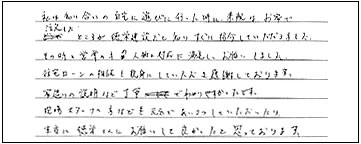 私は知り合いの自宅に遊びに行った時に素敵なお家で
注文した
ところが 建設だと知りすぐに紹介していただきました。
その時も営業の 人柄と対応に満足し、お願いしました。
住宅ローンの相談も親身にしていただき感謝しております。
家造りの説明など丁寧 でわかりやすかったです。
現場スタッフの方なども元気であいさつしていただいたり、
本当に さんにお願いして良かったと思っております。